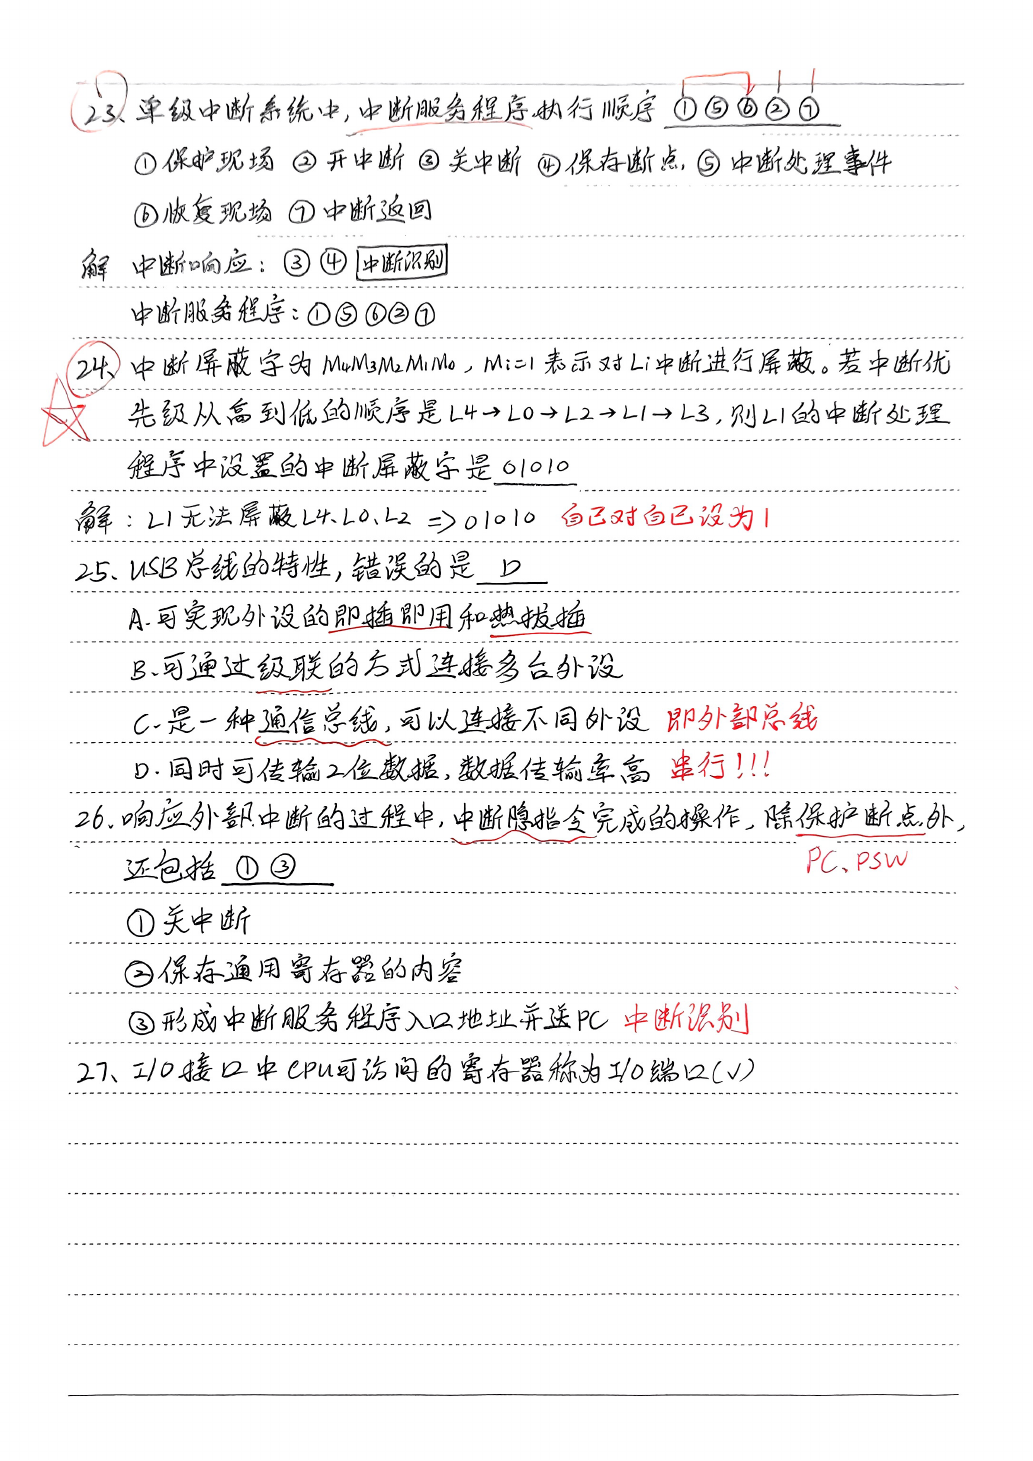 23、单级中断系统中,中断服务程序执行顺序 ①⑤⑥②⑦
①保护现场 ②开中断 ③关中断 ④保存断点 ⑤中断处理事件
⑥恢复现场 ⑦中断返回
解 中断响应：③④ 中断识别
中断服务程序：①⑤⑥②⑦
24、中断屏蔽字为M4M3M2M1M0，Mi=1表示对Li中断进行屏蔽。若中断优
先级从高到低的顺序是L4→L0→L2→L1→L3,则L1的中断处理
程序中设置的中断屏蔽字是01010
解：L1无法屏蔽L4、L0、L2 =>01010 自己对自己设为1
25、USB总线的特性,错误的是 D
A.可实现外设的即插即用和热拔插
B.可通过级联的方式连接多台外设
C.是一种通信总线,可以连接不同外设 即外部总线
D.同时可传输2位数据,数据传输率高 串行!!!
26、响应外部中断的过程中,中断隐指令完成的操作,除保护断点外,
PC、PSW
还包括 ①③
①关中断
②保存通用寄存器的内容
③形成中断服务程序入口地址并送PC 中断识别
27、I/O接口中CPU可访问的寄存器称为I/O端口(√)